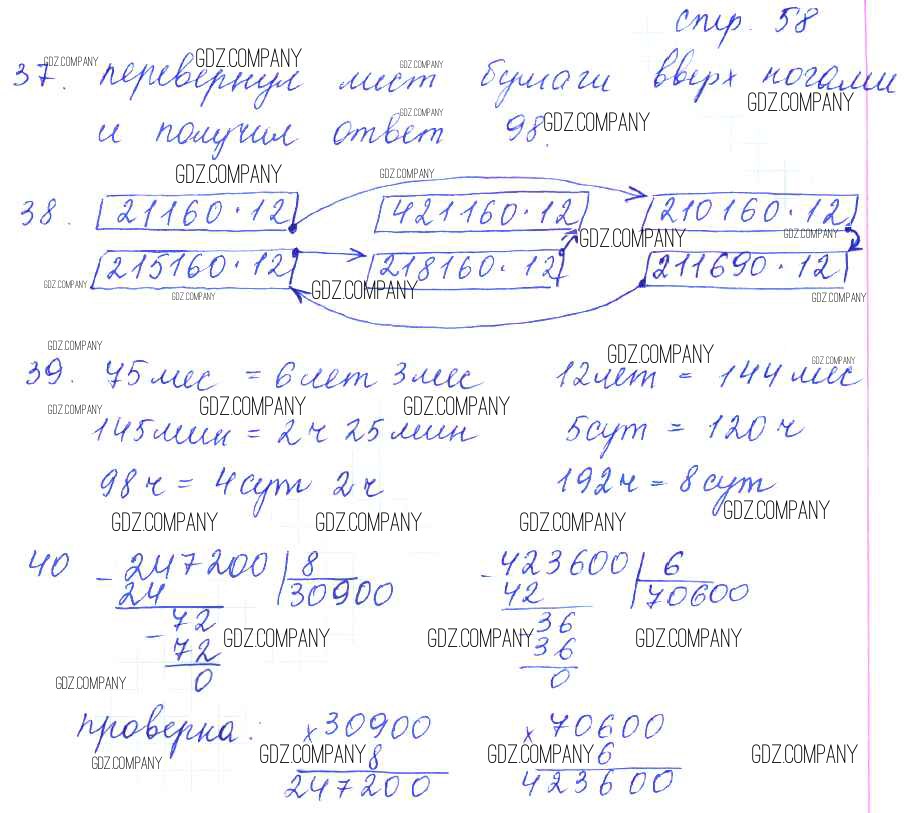 стр. 58
37. перевернул лист бумаги вверх ногами
и получил ответ 98.
38. 21160·12 421160·12 210160·12
215160·12 218160·12 211690·12
39. 75 мес = 6 лет 3 мес 12 лет = 144 мес
145 мин = 2 ч 25 мин 5 сут = 120 ч
98 ч = 4 сут 2 ч 192 ч = 8 сут
40 - 247200 | 8 - 423600 | 6
24 30900 42 70600
- 72 - 36
72 36
0 0
проверка: × 30900 × 70600
8 6
247200 423600
GDZ.COMPANY